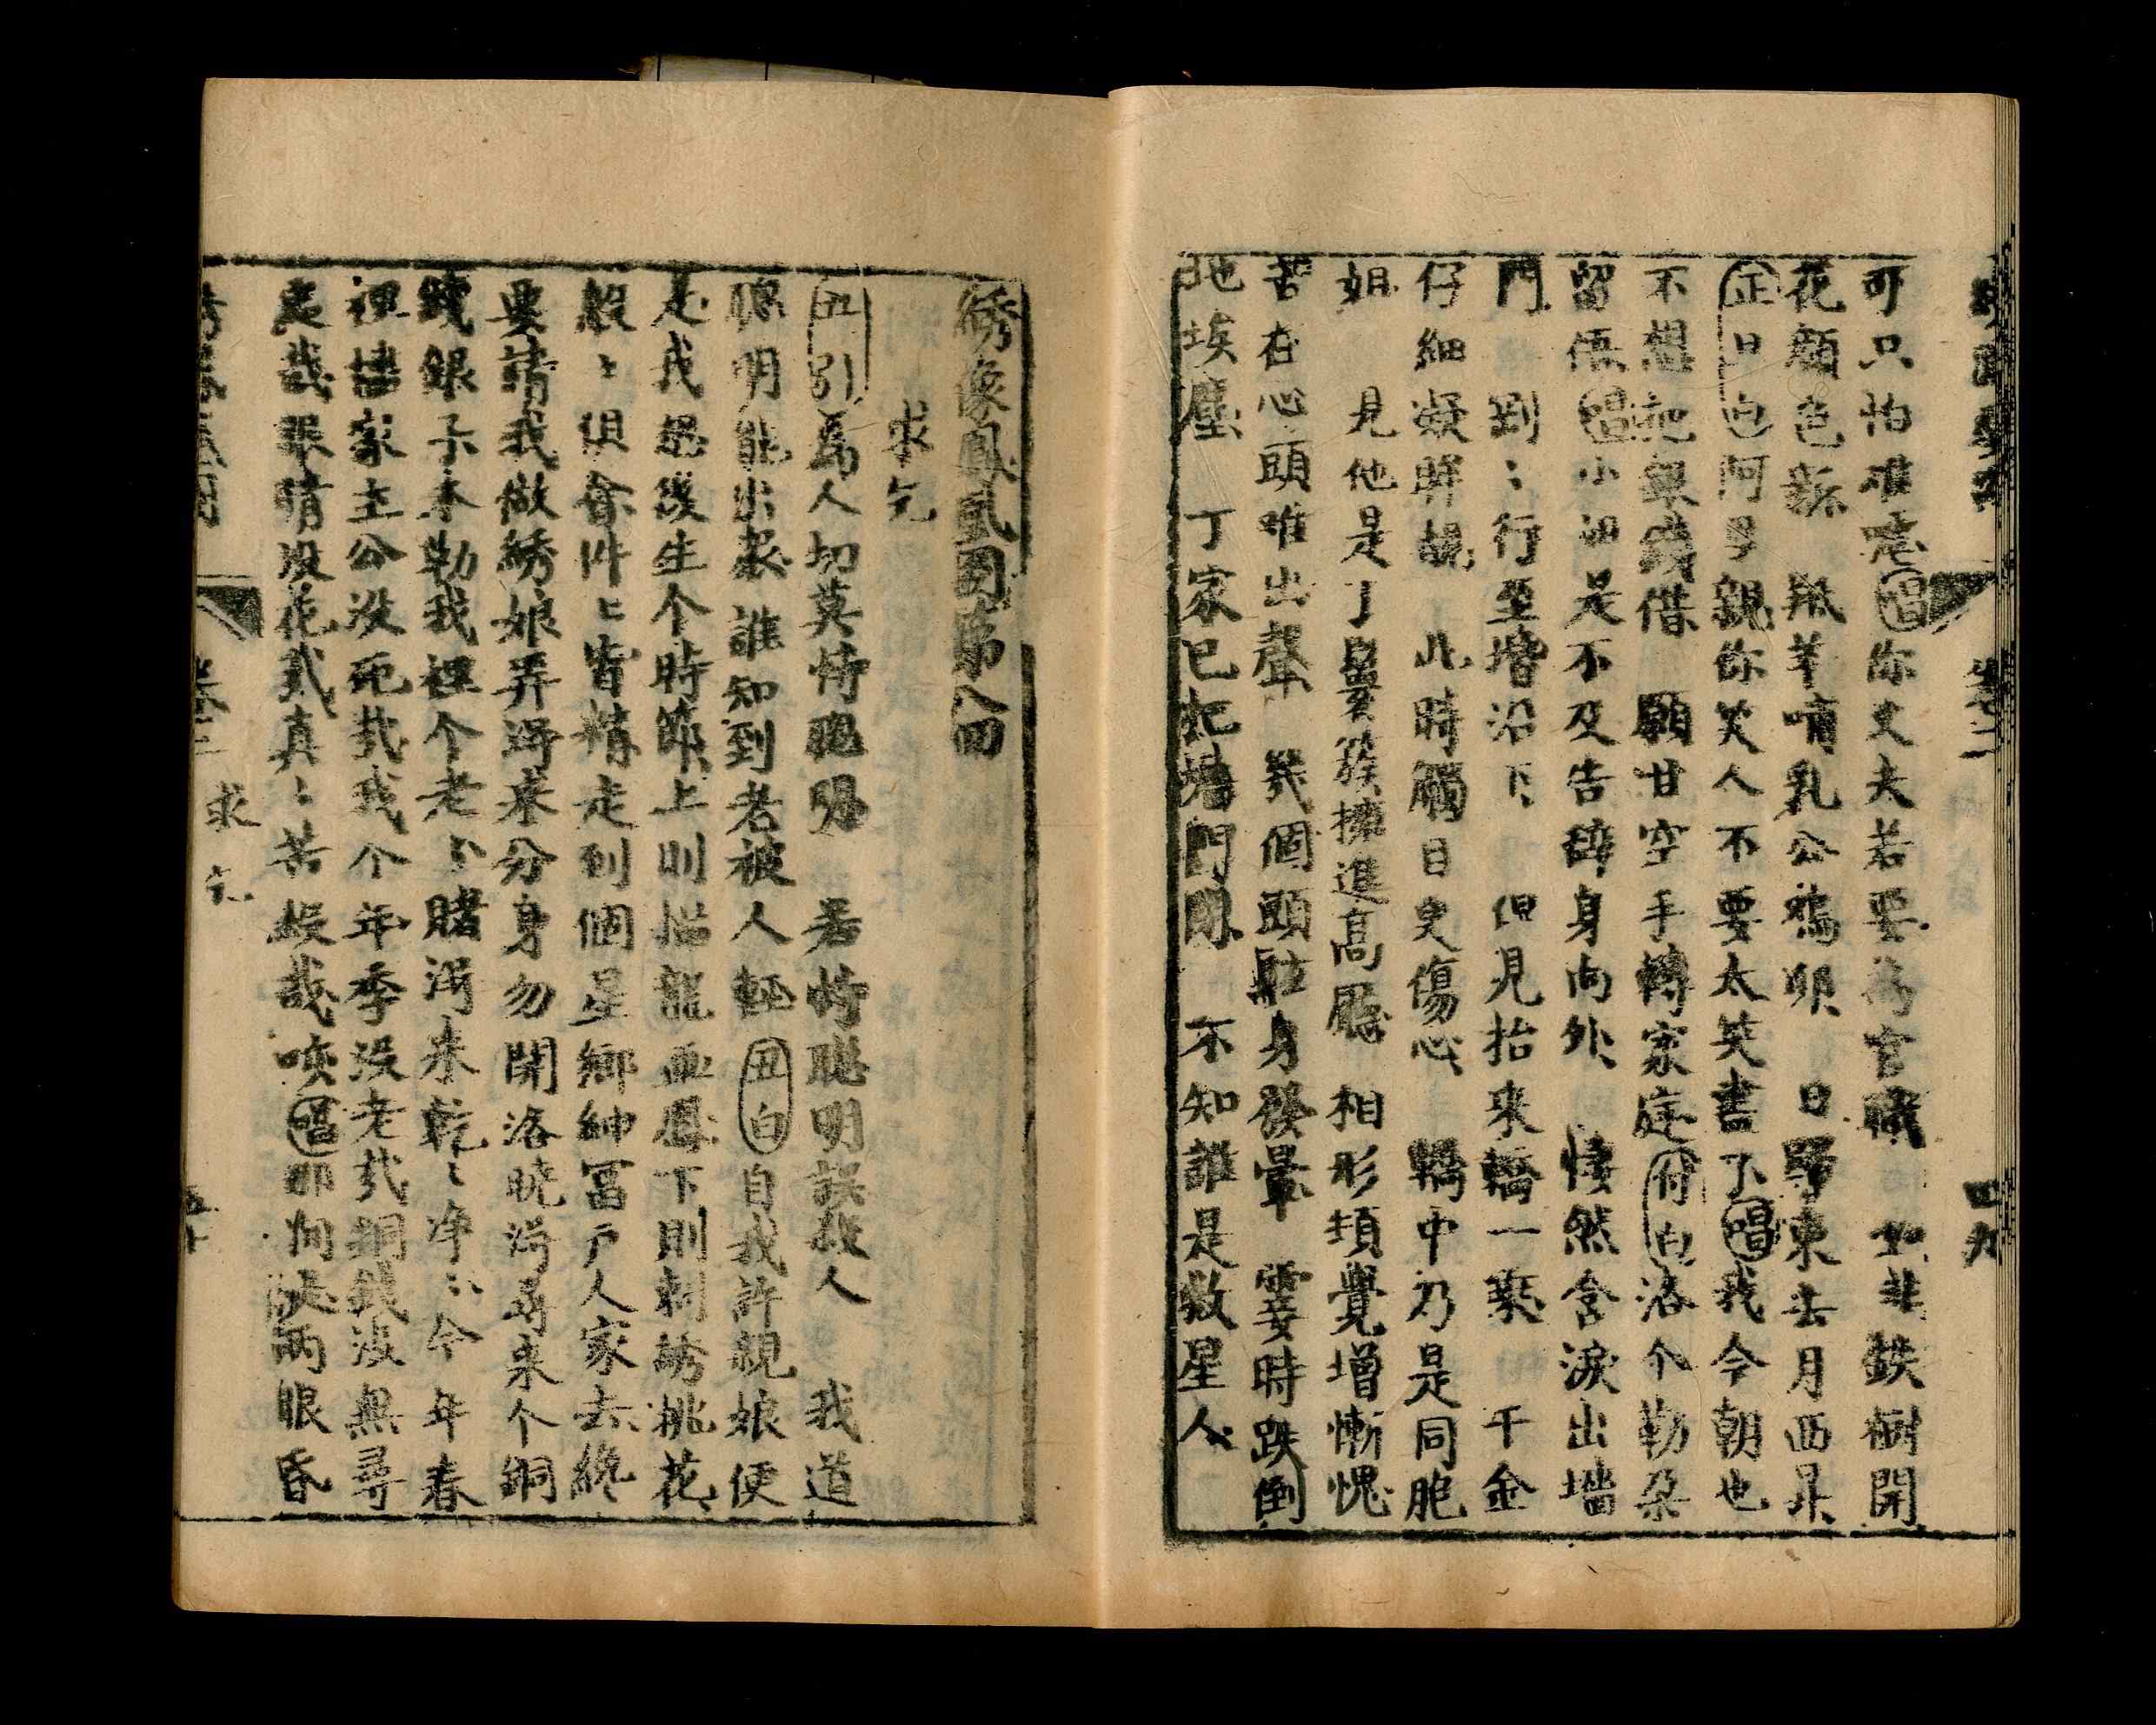 卷二
四九
可只怕难㖿唱你丈夫若要為官職　如非鉄樹開
花顏色新　羝羊哺乳公鴉卵　日歸東去月西昇
正白也阿呀親你笑人不要太笑書了唱我今朝也
不想把銀錢借　願甘空手轉家庭付白洛个勒朶
留俉唱小姐是不及告辞身向外　悽然含淚出墻
門　剛〻行至堦沿下　但見抬来轎一乘　千金
仔細凝眸覷　此時觸目更傷心　轎中乃是同胞
姐　見他是丫嬛簇擁進高廳　相形頃覺增慚愧
苦在心頭唯出聲　幾個頭眩身發暈　霎時跌倒
地埃塵　丁家已把墻門閉　不知誰是救星人
綉像鳳凰图第八回
求乞
丑引為人切莫恃聰明　若恃聰明誤殺人　我道
聰明能出衆　誰知到老被人輕丑白自我許親娘便
是我想後生个時節上則描龍画鳳下則刺綉挑花
般〻俱會件〻皆精走到個星鄉紳冨户人家去終
要請我做綉娘弄淂来分身勿開洛晓淂尋来个銅
錢銀子本勒我裡个老〻賭淂来乾〻净〻今年春
裡搭家主公没死哉我个年季没老哉銅錢没無尋
處哉眼睛没花哉真〻苦殺哉唉唱那间是两眼昏
卷二
求乞
五十